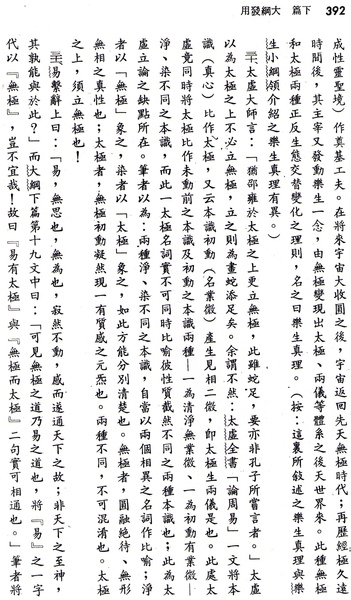 392　下篇　大綱發用
成性靈聖境）作奠基工夫。在將來宇宙大收圓之後，宇宙返回先天無極時代；再歷經極久遠
時間後，其主宰又發動樂生一念，由無極變現出太極、兩儀等體系之後天世界來。此種無極
和太極兩種正反生態交替變化之理則，名之曰樂生真理。（按：這裏所敘述之樂生真理與樂
生小綱領介紹之樂生真理有異。）
三、太虛大師言：「猶邵雍於太極之上更立無極，此雖蛇足，要亦非孔子所嘗言者。」太虛
以為太極之上不必立無極，立之則為畫蛇添足矣。余謂不然：太虛全書「論周易」一文將本
識（真心）比作太極，又云本識初動（名業微）產生見相二微，即太極生兩儀是也。此處太
虛竟同時將太極比作未動前之本識及初動之本識兩種—一為清淨無業微、一為初動有業微—
淨、染不同之本識，而此一太極名詞實不可同時比喻彼性質截然不同之兩種本識也；此為太
虛立論之缺點所在。筆者以為：兩種淨、染不同之本識，自當以兩個相異之名詞作比喻；淨
者以「無極」象之，染者以「太極」象之，如此方能分別清楚也。無極者，圓融絕待、無形
無相之真性也；太極者，無極初動凝然現一有質感之元炁也。兩種不同，不可混淆也。太極
之上，須立無極也！
三、易繫辭上曰：「易，無思也，無為也，寂然不動，感而遂通天下之故；非天下之至神，
其孰能與於此？」而大綱下篇第十九文中曰：「可見無極之道乃易之道也，將『易』之一字
代以『無極』，豈不宜哉！故曰『易有太極』與『無極而太極』二句實可相通也。」筆者將